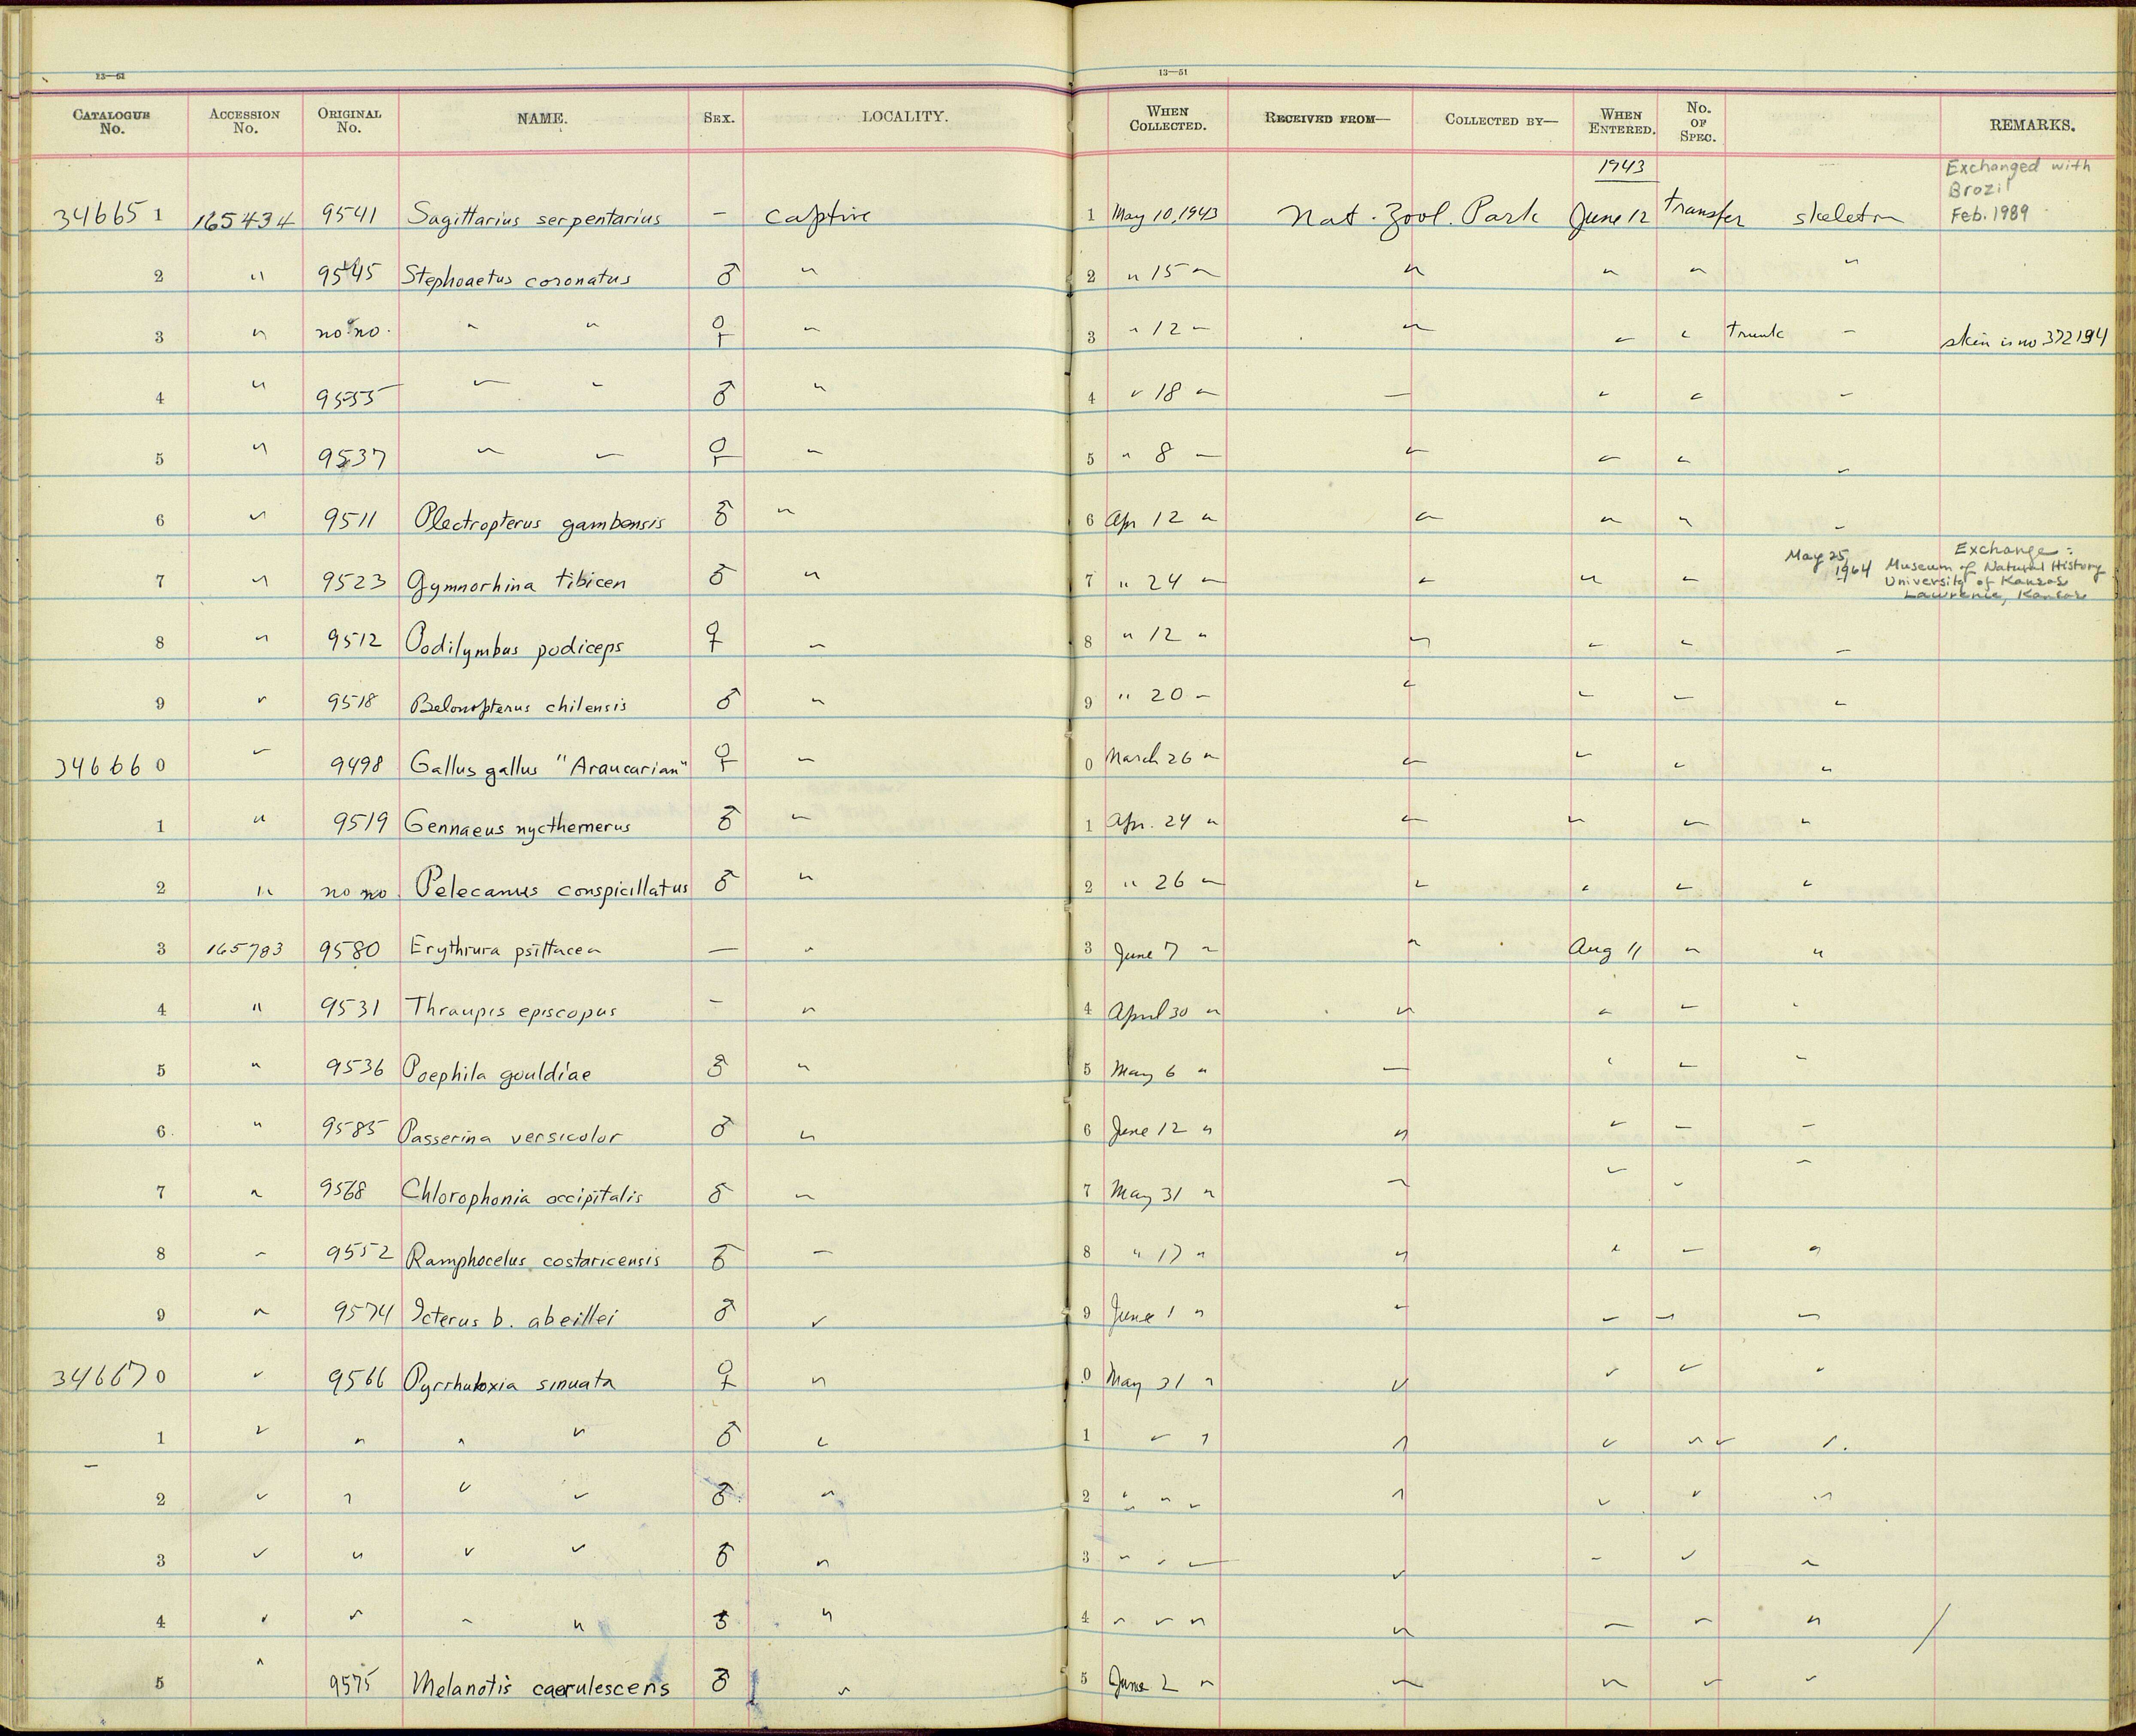 23—51
13—51
CATALOGUE No. ACCESSION No. ORIGINAL No. NAME. SEX. LOCALITY. WHEN COLLECTED. RECEIVED FROM— COLLECTED BY— WHEN ENTERED. No. OF SPEC. REMARKS.
1943
Exchanged with
Brazil
Feb. 1989
34665 1 165434 9541 Sagittarius serpentarius – captive 1 May 10, 1943 Nat. Zool. Park June 12 transfer skeleton
2 " 9545 Stephoaetus coronatus ♂ " 2 " 15 " " " " "
3 " no no. " " ♀ " 3 " 12 " " " " trunk " skin is no 372194
4 " 9555 " " ♂ " 4 " 18 " " " " "
5 " 9537 " " ♀ " 5 " 8 " " " " "
6 " 9511 Plectropterus gambensis ♂ " 6 Apr 12 " " " " "
7 " 9523 Gymnorhina tibicen ♂ " 7 " 24 " " " " May 25, 1964 Exchange:
Museum of Natural History
University of Kansas
Lawrence, Kansas
8 " 9512 Podilymbus podiceps ♀ " 8 " 12 " " " " "
9 " 9518 Belonopterus chilensis ♂ " 9 " 20 " " " " "
34666 0 " 9498 Gallus gallus "Araucarian" ♀ " 0 March 26 " " " " "
1 " 9519 Gennaeus nycthemerus ♂ " 1 Apr. 24 " " " " "
2 " no no. Pelecanus conspicillatus ♂ " 2 " 26 " " " " "
3 165783 9580 Erythrura psittacea — " 3 June 7 " " Aug 11 " "
4 " 9531 Thraupis episcopus – " 4 April 30 " " " " "
5 " 9536 Poephila gouldiae ♂ " 5 May 6 " " " " "
6 " 9585 Passerina versicolor ♂ " 6 June 12 " " " " "
7 " 9568 Chlorophonia occipitalis ♂ " 7 May 31 " " " " "
8 " 9552 Ramphocelus costaricensis ♂ " 8 " 17 " " " " "
9 " 9574 Icterus b. abeillei ♂ " 9 June 1 " " " " "
34667 0 " 9566 Pyrrhuloxia sinuata ♀ " 0 May 31 " " " " "
1 " " " " ♂ " 1 " " " " " "
2 " " " " ♂ " 2 " " " " " " "
3 " " " " ♂ " 3 " " " " " " "
4 " " " " ♂ " 4 " " " " " " "
5 " 9575 Melanotis caerulescens ♂ " 5 June 2 " " " " "